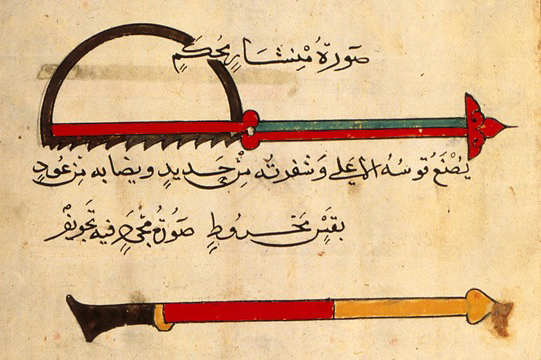 صورة منشار محكم
يصنع قوسه الاعلى وشفرته من حديد ونصابه من عود
بقس مخروط صورة مجرد فيه تجويف